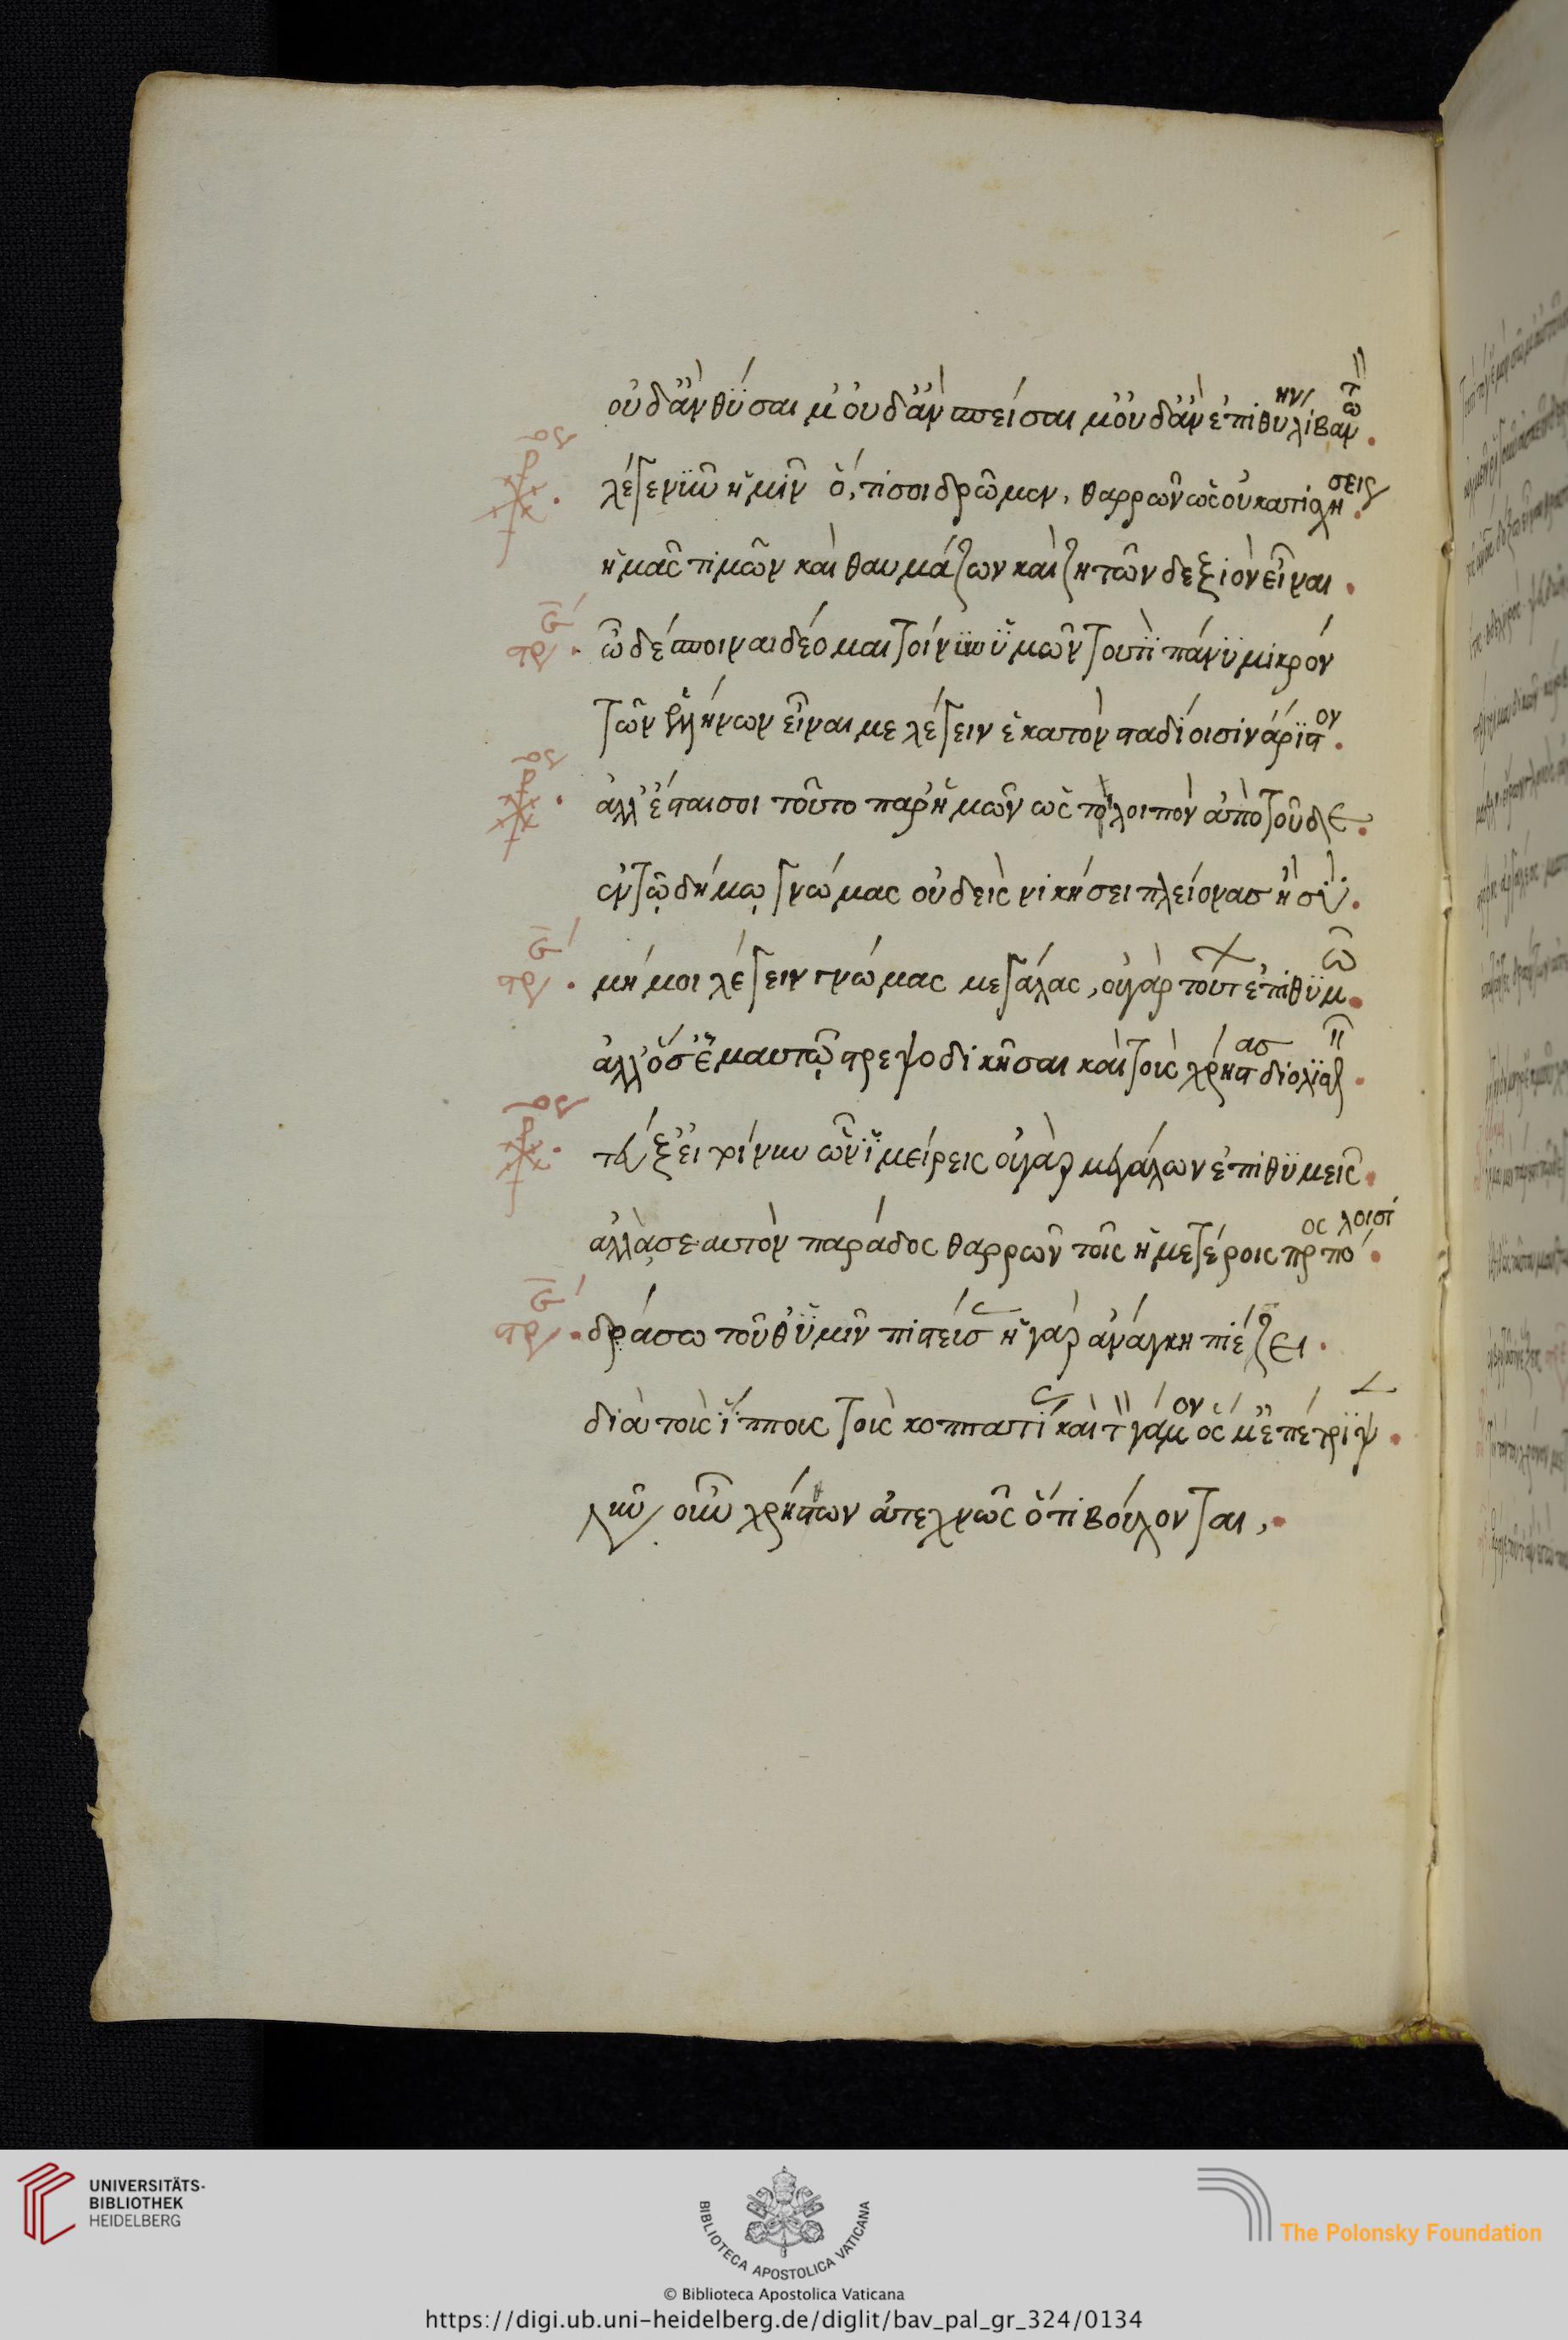 οὐδ' ἂν θύσαιμ' οὐδ' ἂν σπείσαιμ' οὐδ' ἂν ἐπιθυμίην λιβανωτὸν
λέγε νῦν ἡμῖν ὅ, τι σοι δρῶμεν, θαρρῶν ὡς οὐκ ἀτυχήσεις
ἡμᾶς τιμῶν καὶ θαυμάζων καὶ ζητῶν δεξιὸν εἶναι
ὦ δέσποιναι δέομαι τοίνυν ὑμῶν τουτὶ πάνυ μικρόν
τῶν ἑλλήνων εἶναι με λέγειν ἑκατὸν σταδίοισιν ἄριστον
ἀλλ' ἔσται σοι τοῦτο παρ' ἡμῶν ὡς τὸ λοιπὸν ἀπὸ τοῦδε
ἐν τῷ δήμῳ γνώμας οὐδεὶς νικήσει πλείονας ἢ σὺ
μή μοι λέγειν γνώμας μεγάλας, οὐ γὰρ τούτων ἐπιθυμῶ
ἀλλ' ὅσ' ἐμαυτῷ στρεψοδικῆσαι καὶ τοὺς χρήστας διολισθεῖν
τεύξει τοίνυν ὧν ἱμείρεις οὐ γὰρ μεγάλων ἐπιθυμεῖς
ἀλλὰ σεαυτὸν παράδος θαρρῶν τοῖς ἡμετέροις προσπόλοισι
δράσω τοῦθ' ὑμῖν πιστεύσας ἡ γὰρ ἀνάγκη πιέζει
διὰ τοὺς ἵππους τοὺς κοππατίας καὶ τὸν γάμον ὅς μ' ἐπέτριψεν
νῦν οὖν χρήστων ἀτεχνῶς ὅ τι βούλονται,
UNIVERSITÄTS-
BIBLIOTHEK
HEIDELBERG
BIBLIOTECA APOSTOLICA VATICANA
The Polonsky Foundation
© Biblioteca Apostolica Vaticana
https://digi.ub.uni-heidelberg.de/diglit/bav_pal_gr_324/0134